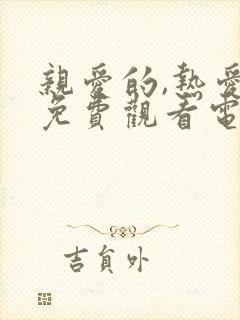 親愛的,熱愛
免費觀看電
吉貟外